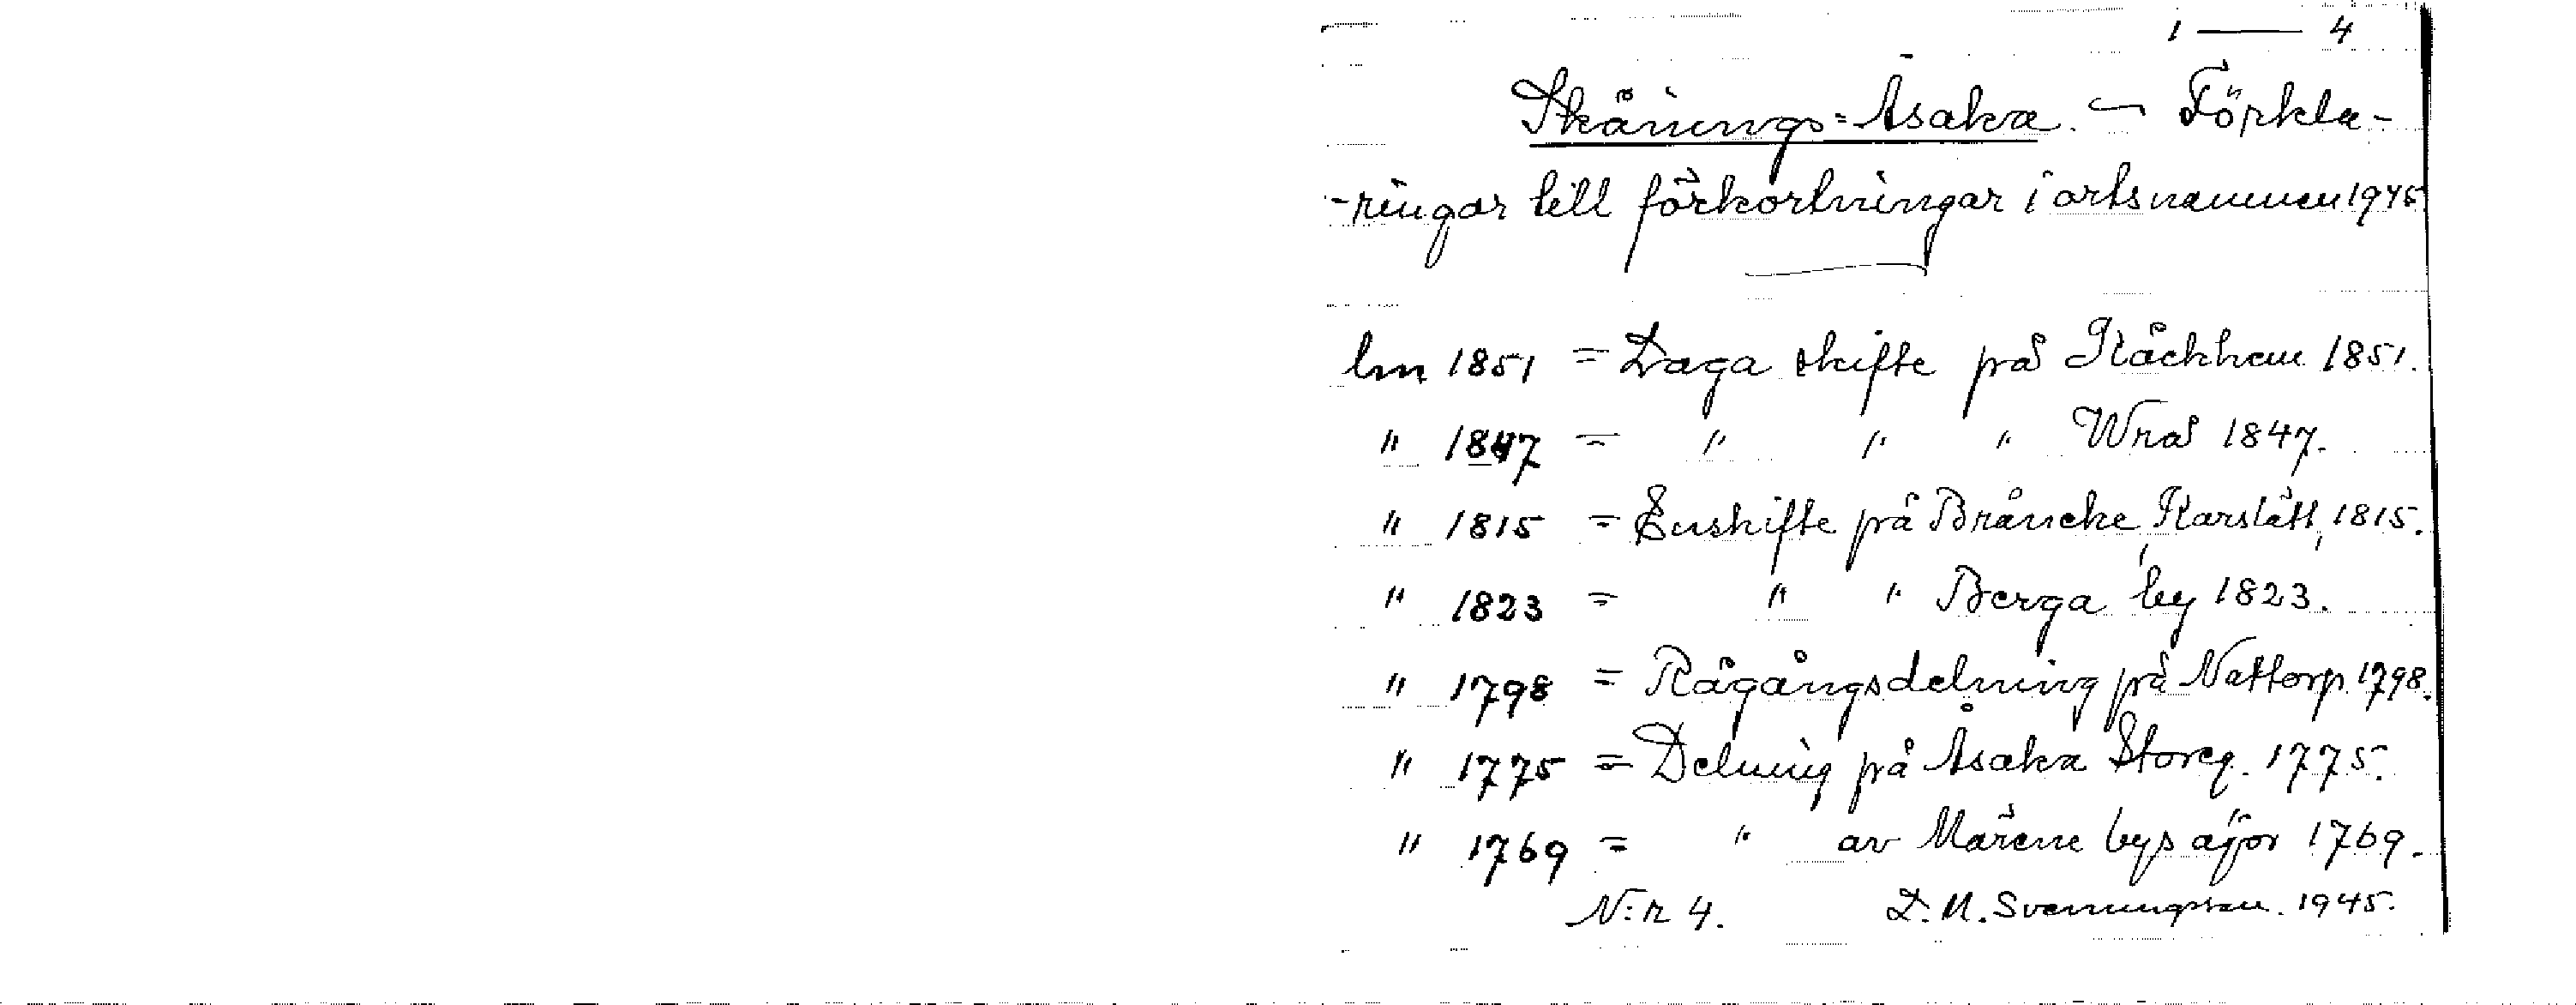 1 — 4
Skånings-Åsaka. — Förkla-
-ringar till förkortningar i ortsnamnen 1945
lm 1851 = Laga skifte på Råckhem 1851.
" 1847 = " " " Wrå 1847.
" 1815 = Enskifte på Bråneke, Karstätt, 1815.
" 1823 = " " Berga by 1823.
" 1798 = Rågångsdelning på Nattorp 1798.
" 1775 = Delning på Åsaka Storeg. 1775.
" 1769 = " av Marene bys äjor 1769.
N:r 4. L. M. Svenungsson. 1945.